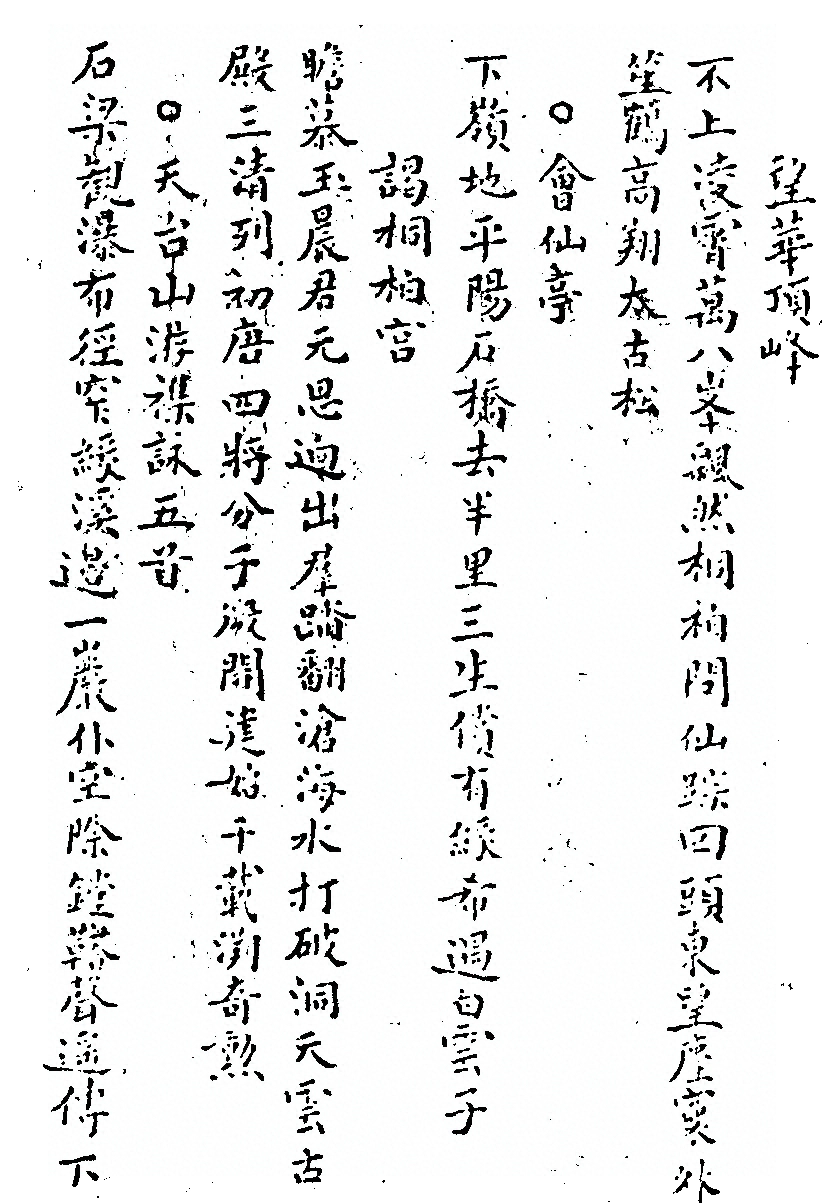 望華頂峰
不上凌霄萬八峯飄然桐柏問仙蹤回頭東望塵寰外
笙鶴高翔太古松
○會仙亭
下嶺地平陽石橋去半里三生償有緣希遇白雲子
謁桐柏宮
瞻慕玉晨君元恩迥出群踏翻滄海水打破洞天雲古
殿三清列初唐四將分于殿開建始千載溯奇勲
○天台山游襍詠五首
石梁觀瀑布徑窄緣溪邊一巖仆空際鏜鞳聲遥傳下